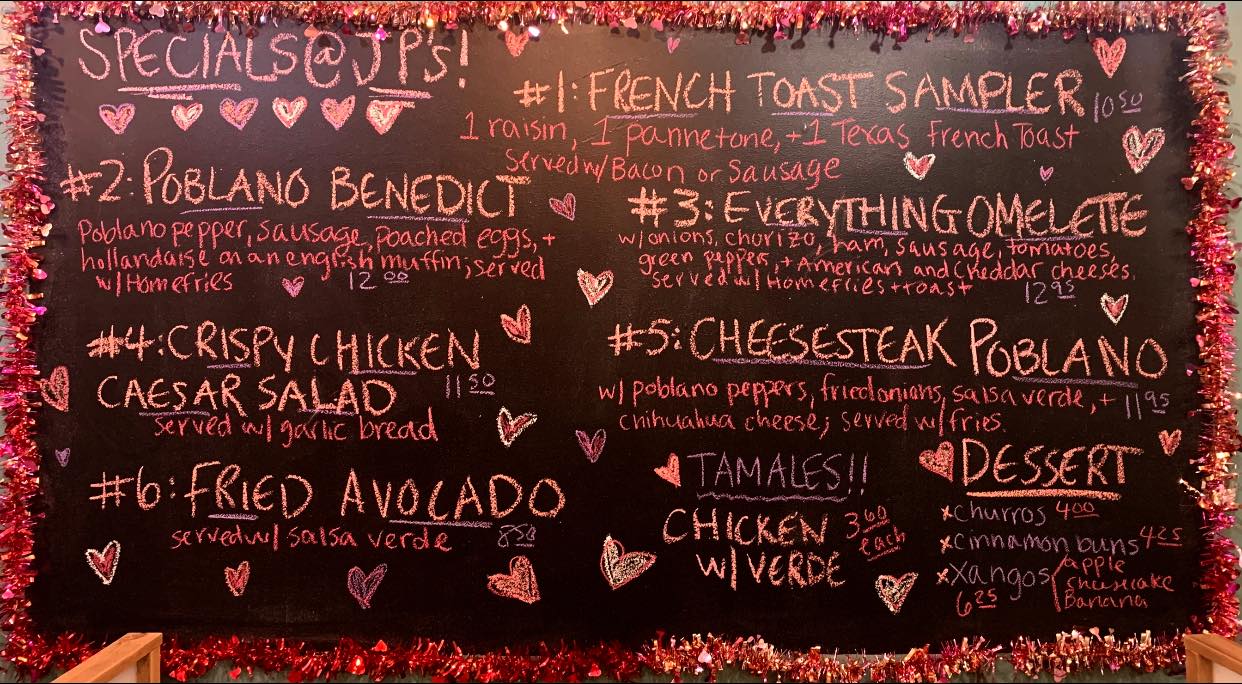 SPECIALS@JP's!
#1: FRENCH TOAST SAMPLER 10 50
1 raisin, 1 pannetone, + 1 Texas French Toast
served w/ Bacon or Sausage
#2: POBLANO BENEDICT
Poblano pepper, sausage, poached eggs, +
hollandaise on an english muffin; served
w/ Homefries 12 00
#3: EVERYTHING OMELETTE
w/ onions, chorizo, ham, sausage, tomatoes,
green peppers, + American and Cheddar cheeses.
served w/ Homefries + toast 12 95
#4: CRISPY CHICKEN
CAESAR SALAD 11 50
served w/ garlic bread
#5: CHEESESTEAK POBLANO
w/ poblano peppers, fried onions, salsa verde, + 11 95
chihuahua cheese; served w/ fries.
#6: FRIED AVOCADO
served w/ salsa verde 8 50
TAMALES!!
CHICKEN 3 60 each
w/ VERDE
DESSERT
x churros 4 00
x cinnamon buns 4 25
x Xangos apple
cheesecake
6 25 Banana